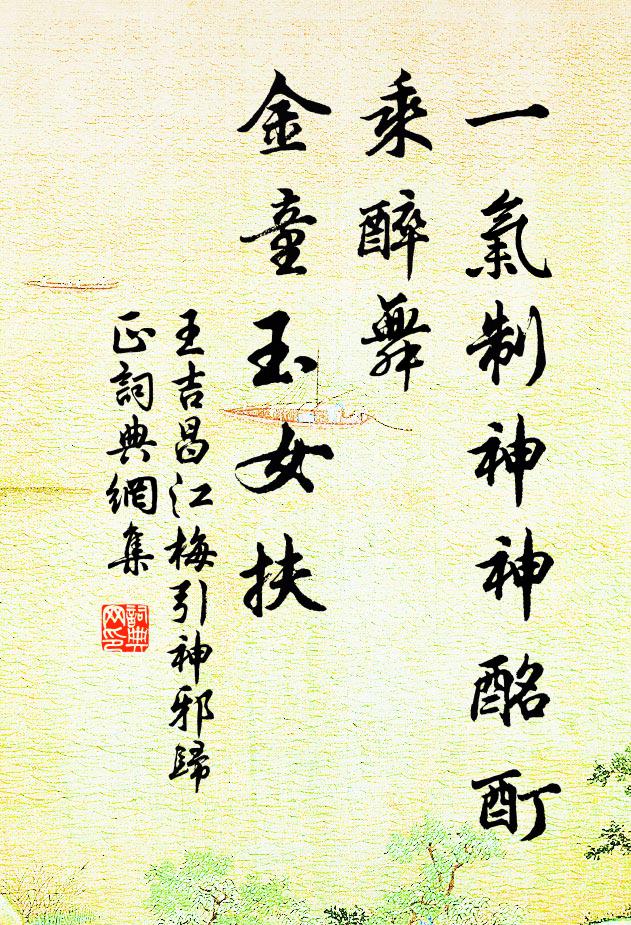 一氣制神神酩酊
乘醉舞
金童玉女扶
王吉昌江梅引神邪歸
正詞典網集
詞典
网印